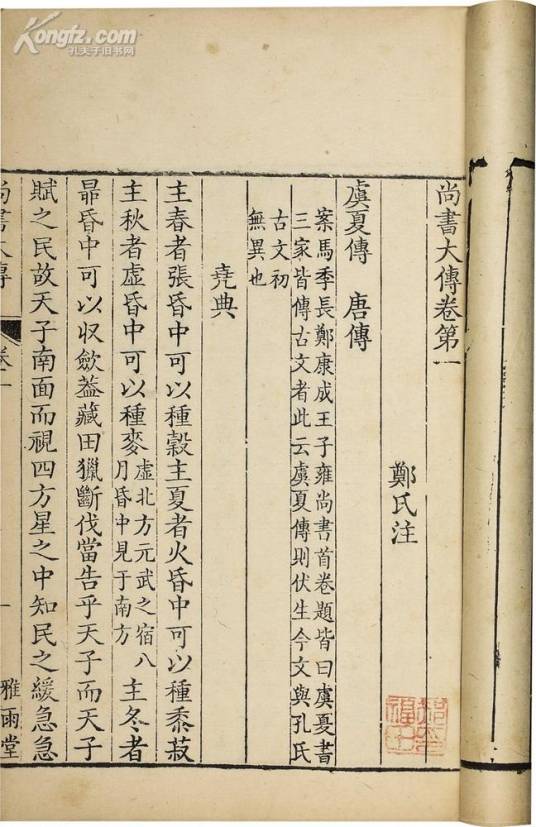 Kongfz.com
孔夫子旧书网
尚書大傳卷第一
鄭氏注
虞夏傳 唐傳
案馬季長鄭康成王子雍尚書首卷題皆曰虞夏書
三家皆傳古文者此云虞夏傳則伏生今文與孔氏
古文初
無異也
堯典
主春者張昏中可以種穀主夏者火昏中可以種黍菽
主秋者虛昏中可以種麥虛北方元武之宿八月昏中見于南方主冬者
昴昏中可以収斂葢藏田獵斷伐當告乎天子而天子
賦之民故天子南面而視四方星之中知民之緩急急
尚書大傳 卷一 一 雅雨堂